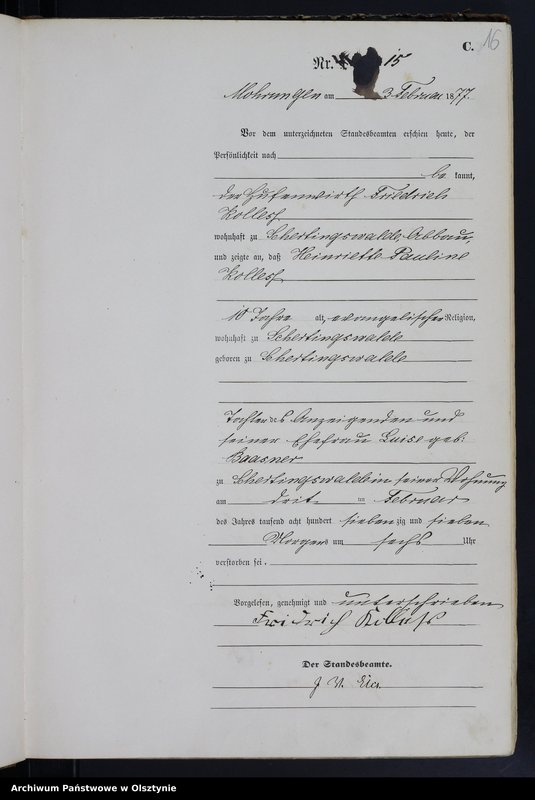 C. 16
Nr. 15
Mohrungen am 3 Februar 1877.
Vor dem unterzeichneten Standesbeamten erschien heute, der
Persönlichkeit nach
be kannt,
der Hufenwirth Friedrich
Kolless
wohnhaft zu Schertingswalde Abbau,
und zeigte an, daß Henriette Pauline
Kolless
10 Jahre alt, evangelischer Religion,
wohnhaft zu Schertingswalde
geboren zu Schertingswalde
Tochter des Anzeigenden und
seiner Ehefrau Luise geb:
Baasner
zu Schertingswalde in seiner Wohnung
am drit. Februar
des Jahres tausend acht hundert sieben zig und sieben
Morgens um sechs Uhr
verstorben sei.
Vorgelesen, genehmigt und unterschrieben
Fridrich Kolless
Der Standesbeamte.
J. V.
Archiwum Państwowe w Olsztynie